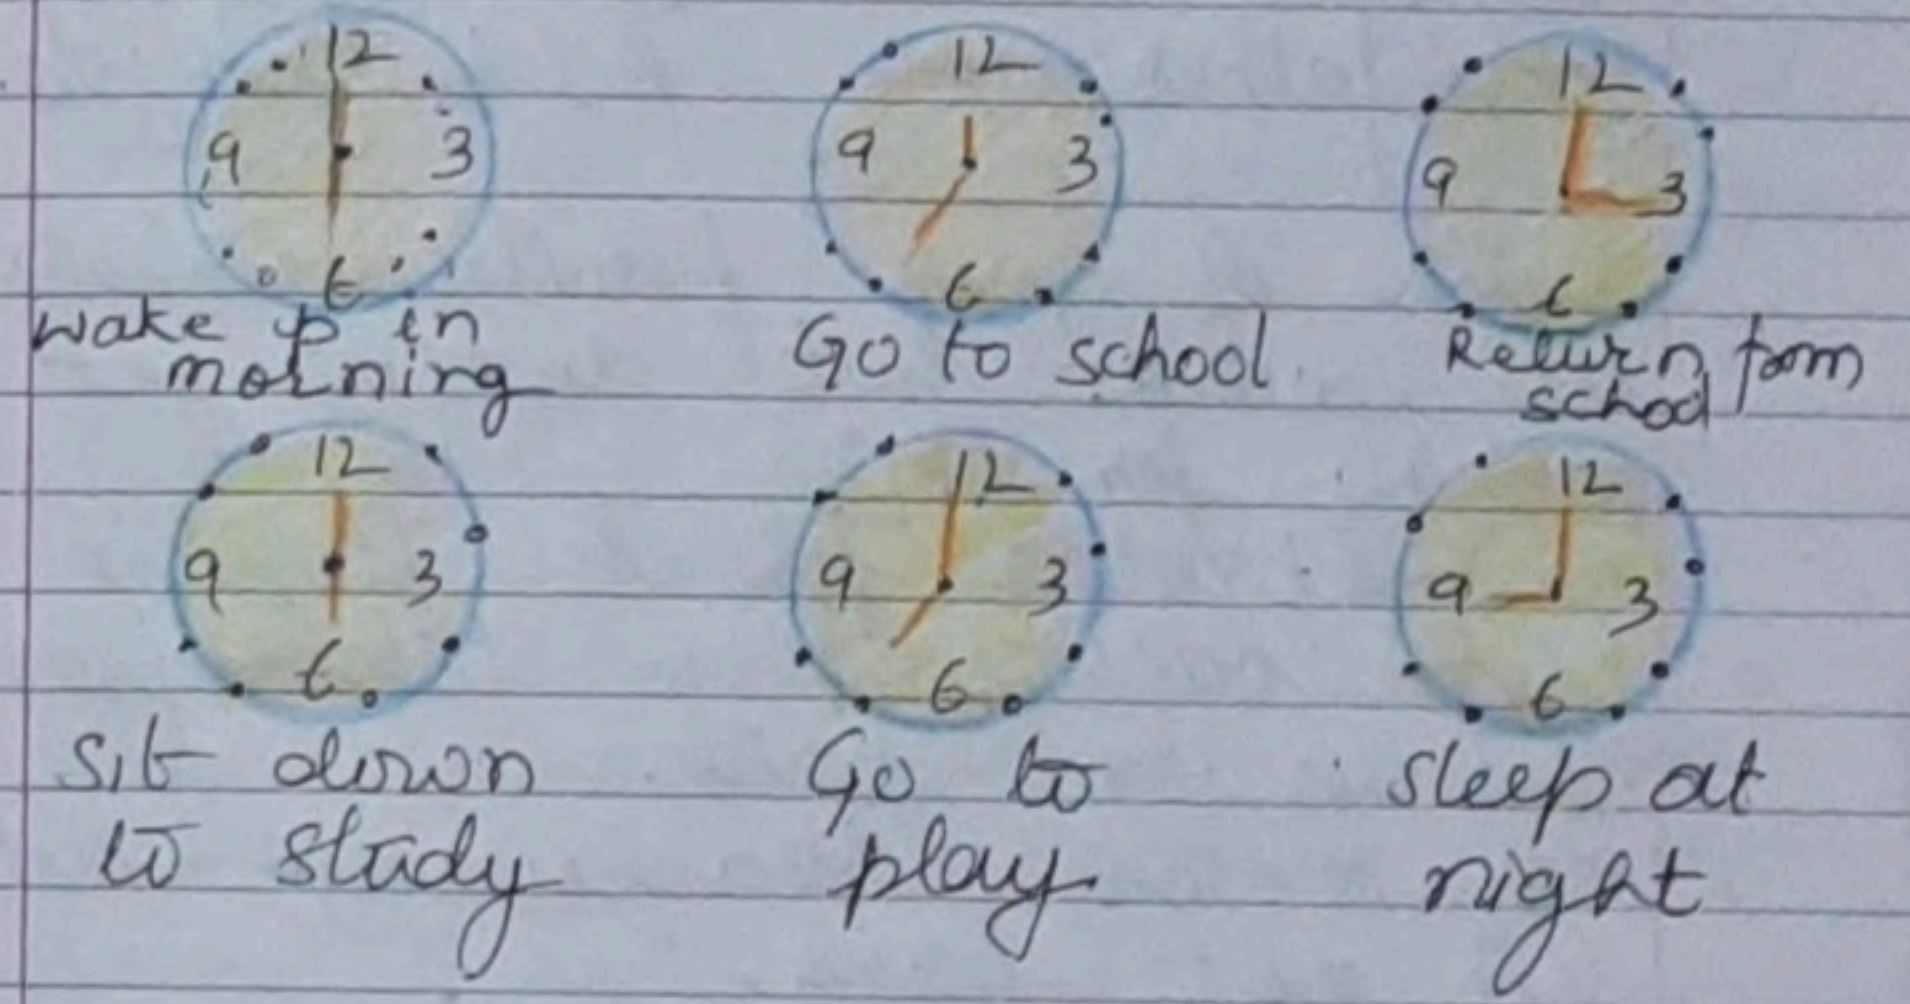 12
9 3
6
wake up in
morning
12
9 3
6
Go to school.
12
9 3
6
Return from
school
12
9 3
6
Sit down
to study
12
9 3
6
Go to
play.
12
9 3
6
Sleep at
night